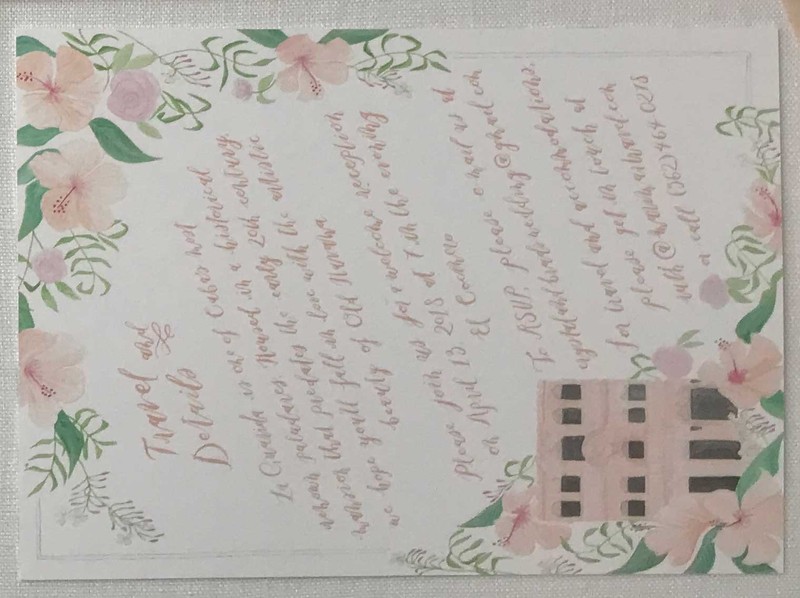 Travel and
Details
La Guarida is one of Cuba's most
known paladares. Housed in a historical
mansion that predates the early 20th century,
we hope you'll fall in love with the artistic
beauty of Old Havana
Please join us for a welcome reception
on April 13, 2018 at 7 in the evening
El Cocinero
To RSVP, please e-mail us at
crystalandbradswedding@gmail.com
For travel and accommodations,
please get in touch at
ruth@
or call (362) 464-6278